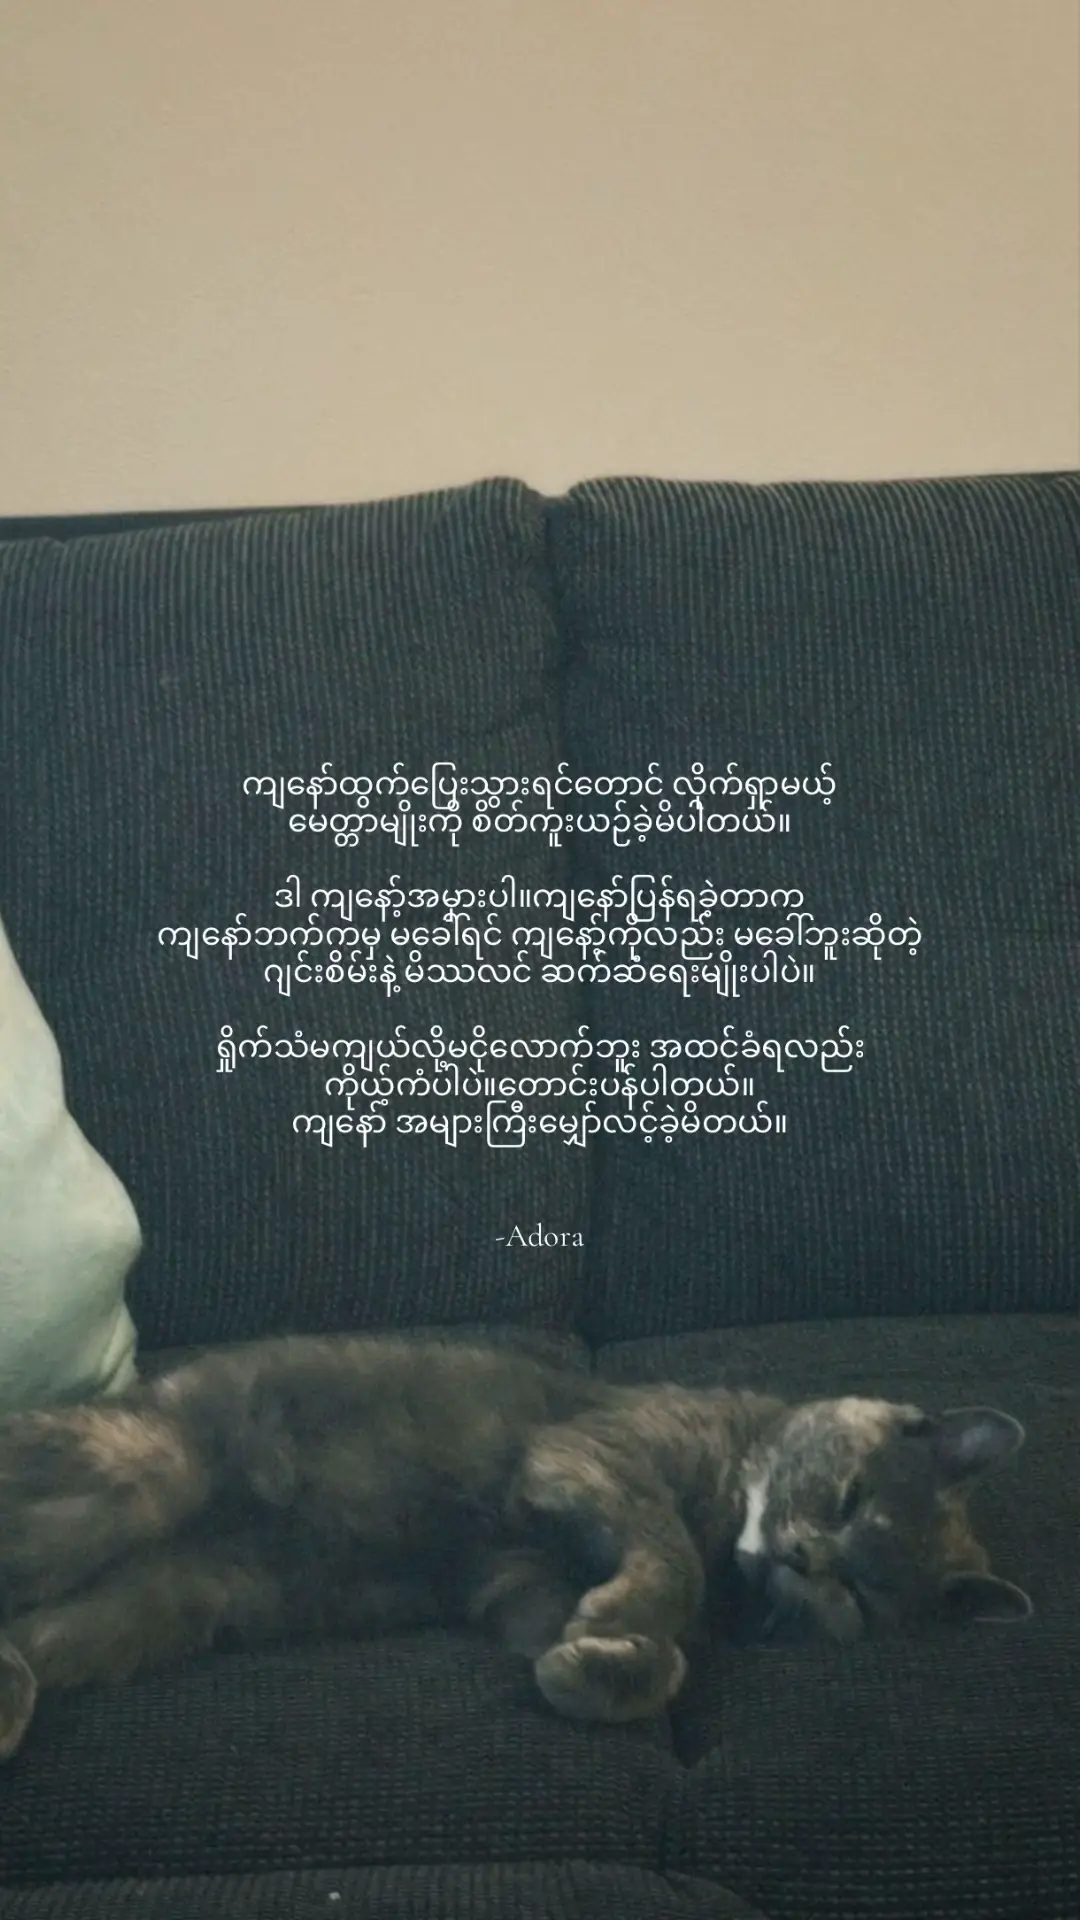 ကျနော်ထွက်ပြေးသွားရင်တောင် လိုက်ရှာမယ့်
မေတ္တာမျိုးကို စိတ်ကူးယဉ်ခဲ့မိပါတယ်။
ဒါ ကျနော့်အမှားပါ။ကျနော်ပြန်ရခဲ့တာက
ကျနော်ဘက်ကမှ မခေါ်ရင် ကျနော့်ကိုလည်း မခေါ်ဘူးဆိုတဲ့
ဂျင်းစိမ်းနဲ့ မိဿလင် ဆက်ဆံရေးမျိုးပါပဲ။
ရှိုက်သံမကျယ်လို့မငိုလောက်ဘူး အထင်ခံရလည်း
ကိုယ့်ကံပါပဲ။တောင်းပန်ပါတယ်။
ကျနော် အများကြီးမျှော်လင့်ခဲ့မိတယ်။
-Adora